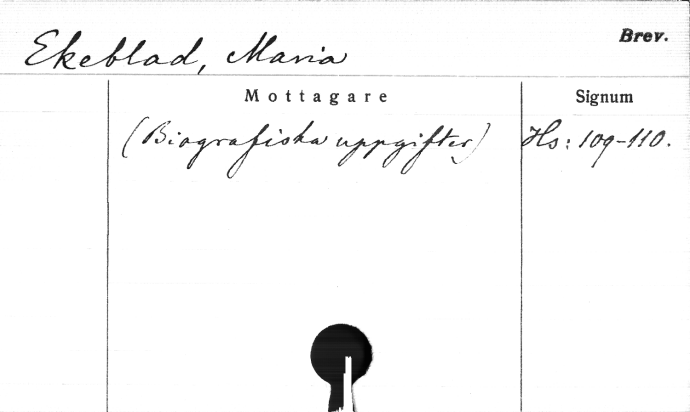 Ekeblad, Maria
Brev.
Mottagare
Signum
(Biografiska uppgifter)
Hs: 109-110.